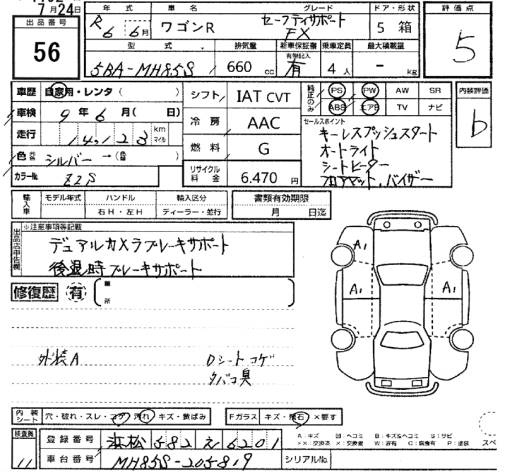 7月24日
出品番号
56
年式 車名 グレード ドア・形状
R6 6月 ワゴンR セーフティサポート FX 5 箱
評価点
5
型式 排気量 新車保証書 乗車定員 最大積載量
5BA-MH85S 660 cc 有 4人 - kg
車歴 自家用・レンタ( )
車検 9年6月( 日)
走行 14,123 km マイル
色 シルバー→( )
カラーNo. Z2S
シフト IAT CVT
冷房 AAC
燃料 G
リサイクル料金 6.470円
純正のみ
PS PW AW SR
ABS エアB TV ナビ
セールスポイント
キーレスプッシュスタート
オートライト
シートヒーター
フロアマット、バイザー
内装評価
b
輸入車
モデル年式 ハンドル 輸入区分 書類有効期限
右H・左H ディーラー・並行 月 日迄
※注意事項等記載
デュアルカメラブレーキサポート
後退時ブレーキサポート
修復歴 有
箇所
外装A Dシートコゲ
タバコ臭
A1
A1
A1
内装シート 穴・破れ・スレ・コゲ・汚れ・キズ・黄ばみ Fガラス キズ・飛石・×要す
検査員
11
登録番号 浜松 582 え 6201
車台番号 MH85S-205819 シリアルNo.